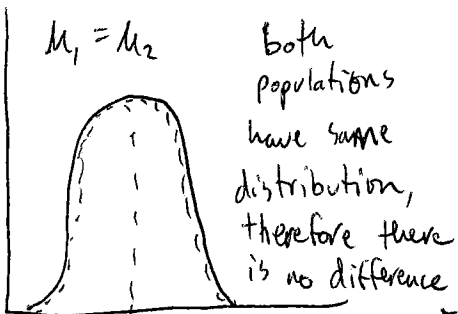 μ₁ = μ₂
both
populations
have same
distribution,
therefore there
is no difference